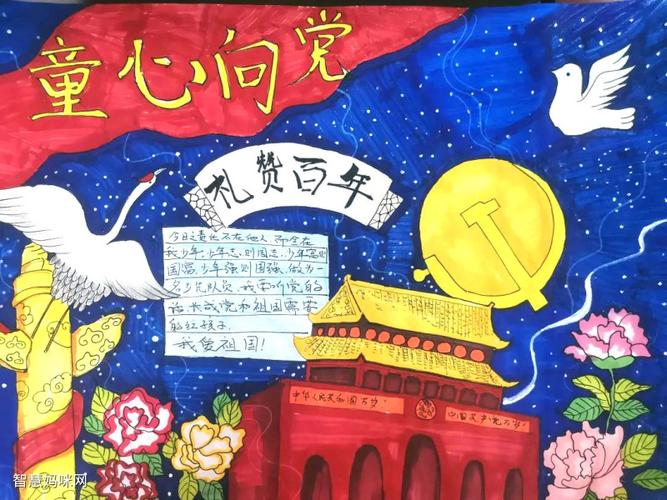 童心向党
礼赞百年
今日之责任不在他人,而全在
我少年,少年志,则国志,少年富则
国富,少年强则国强,做为一
名少先队员,我要听党的
话长成党和祖国需要
的红孩子.
我爱祖国!
中华人民共和国万岁
中国共产党万岁
智慧妈咪网